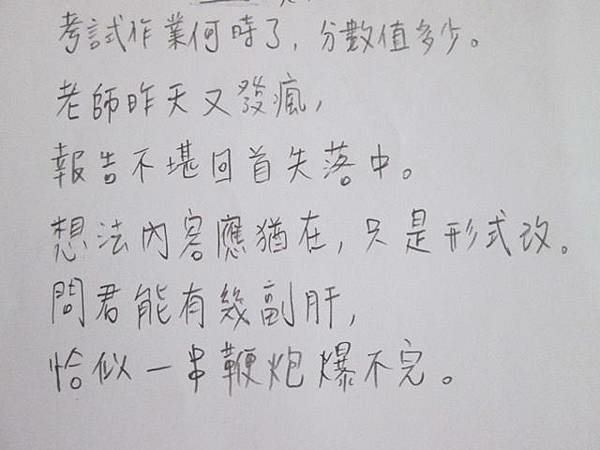 考試作業何時了，分數值多少。
老師昨天又發瘋，
報告不堪回首失落中。
想法內容應猶在，只是形式改。
問君能有幾副肝，
恰似一串鞭炮爆不完。